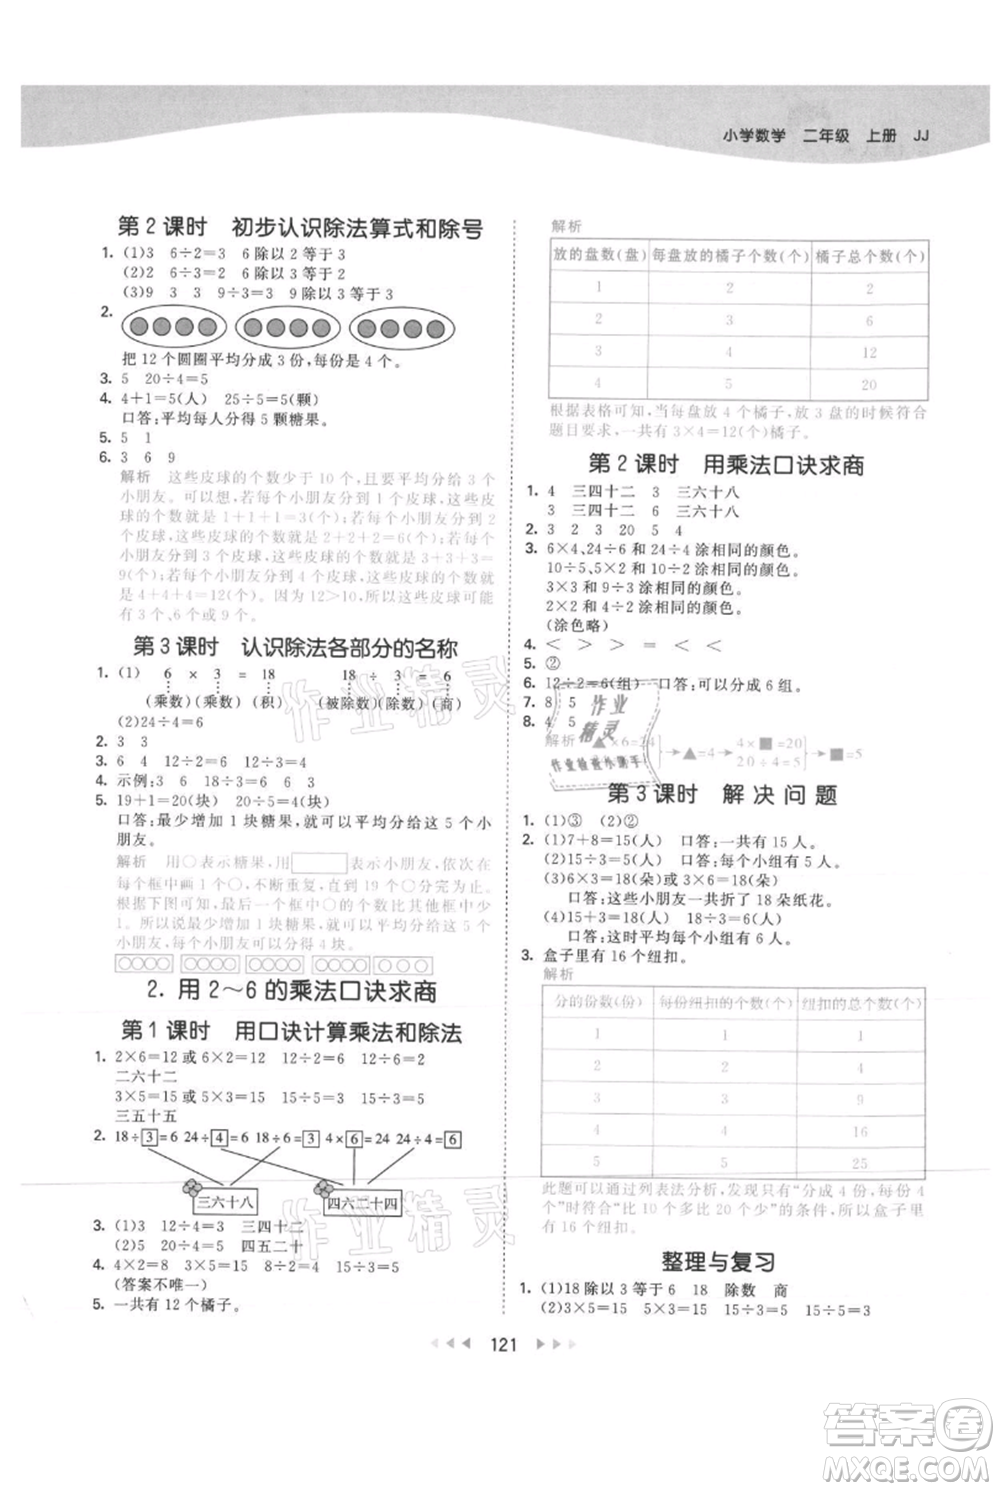 小学数学 二年级 上册 JJ
第2课时 初步认识除法算式和除号
1. (1)3 6÷2=3 6除以2等于3
(2)2 6÷3=2 6除以3等于2
(3)9 3 3 9÷3=3 9除以3等于3
2.
把12个圆圈平均分成3份,每份是4个。
3. 5 20÷4=5
4. 4+1=5(人) 25÷5=5(颗)
口答:平均每人分得5颗糖果。
5. 5 1
6. 3 6 9
解析 这些皮球的个数少于10个,且要平均分给3个小朋友。可以想:若每个小朋友分到1个皮球,这些皮球的个数就是1+1+1=3(个);若每个小朋友分到2个皮球,这些皮球的个数就是2+2+2=6(个);若每个小朋友分到3个皮球,这些皮球的个数就是3+3+3=9(个);若每个小朋友分到4个皮球,这些皮球的个数就是4+4+4=12(个)。因为12>10,所以这些皮球可能有3个、6个或9个。
第3课时 认识除法各部分的名称
1. (1) 6 × 3 = 18 18 ÷ 3 = 6
(乘数)(乘数) (积) (被除数)(除数)(商)
(2)24÷4=6
2. 3 3
3. 12÷2=6 12÷6=2
4. 示例:3 6 18÷3=6
5. 19+1=20(块) 20÷5=4(块)
口答:最少增加1块糖果,就可以平均分给这5个小朋友。
解析 用○表示糖果,用 表示小朋友,依次在每个框中画1个○,不断重复,直到19个○分完为止。最后发现,有1个框中○的个数比其他框中少1。所以说最少增加1块糖果,就可以平均分给这5个小朋友,这时每个小朋友分得4块。
2. 用2~6的乘法口诀求商
第1课时 用口诀计算乘法和除法
1. 2×6=12或6×2=12 12÷2=6 12÷6=2
二六十二
3×5=15或5×3=15 15÷3=5 15÷5=3
三五十五
2. 18÷3=6 24÷4=6 18÷6=3 4×6=24 24÷4=6
三六十八 四六二十四
3. (1)3 12÷4=3 三四十二
(2)5 20÷4=5 四五二十
4. 4×2=8 3×5=15 6÷2=3
(答案不唯一)
5. 一共有12个橘子。
解析
放的盘数(盘) 每盘放的橘子个数(个) 橘子总个数(个)
1 2 2
2 3 6
3 4 12
4 5 20
根据表格可知,当每盘放4个橘子,放3盘的时候符合题目要求,一共有3×4=12(个)橘子。
第2课时 用乘法口诀求商
1. 4 三四十二 3 三六十八
3 三四十二 6 三六十八
2. 3 2 3 20 5 4
3. 6×4、24÷6和24÷4涂相同的颜色。
10÷5、5×2和10÷2涂相同的颜色。
3×3和9÷3涂相同的颜色。
2×2和4÷2涂相同的颜色。
(涂色略)
4. < > = < <
5. ②
6. 12÷2=6(组) 口答:可以分成6组。
7. 8 5
8. 4 5
解析 ▲×6=24 →▲=4→ 4×■=20 →■=5
20÷4=■
第3课时 解决问题
1. (1)③ (2)②
2. (1)7+8=15(人) 口答:一共有15人。
(2)15÷3=5(人) 口答:每个小组有5人。
(3)6×3=18(朵)或3×6=18(朵)
口答:这些小朋友一共折了18朵纸花。
(4)15+3=18(人) 18÷3=6(人)
口答:这时平均每个小组有6人。
3. 盒子里有16个纽扣。
解析
分的份数(份) 每份纽扣的个数(个) 纽扣的总个数(个)
1 1 1
2 2 4
3 3 9
4 4 16
5 5 25
此题可以通过列表法分析,发现只有“分成4份,每份4个”时符合“比10个多比20个少”的条件,所以盒子里有16个纽扣。
整理与复习
1. (1)18除以3等于6 18 除数 商
(2)3×5=15 5×3=15 15÷3=5 15÷5=3
121
作业精灵
作业精灵
作业精灵
作业检查小助手
答案圈
MXQE.COM